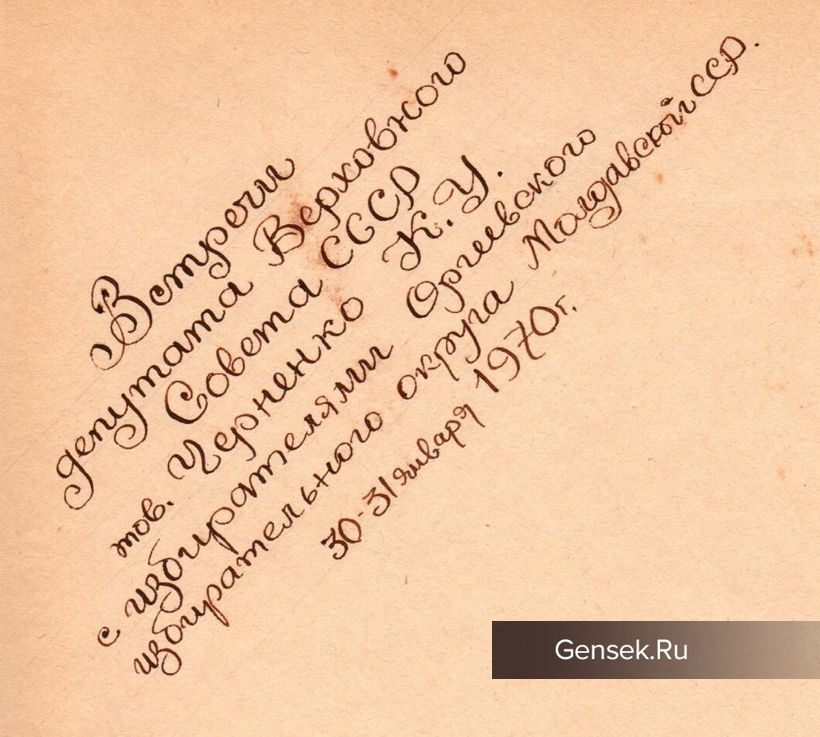 Встречи
депутата Верховного
Совета СССР
тов. Черненко К.У.
с избирателями Оргеевского
избирательного округа Молдавской ССР.
30-31 января 1970 г.
Gensek.Ru